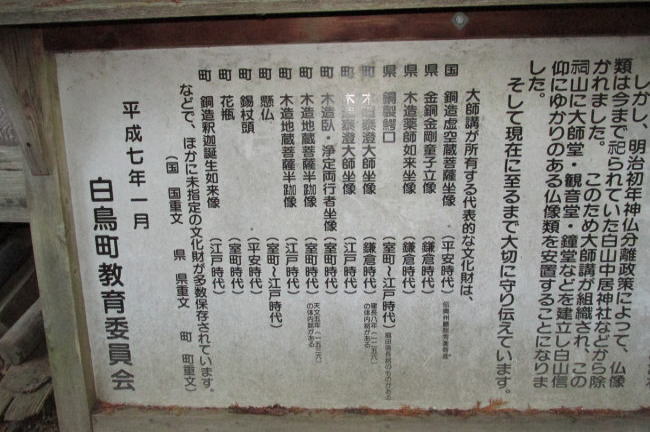 しかし、明治初年神仏分離政策によって、仏像
類は今まで祀られていた白山中居神社などから除
かれました。 このため大師講が組織され、この
祠山に大師堂・観音堂・鐘堂などを建立し白山信
仰にゆかりのある仏像類を安置することになりま
した。
そして現在に至るまで大切に守り伝えています。
大師講が所有する代表的な文化財は、
国 銅造虚空蔵菩薩坐像 (平安時代)
県 金銅金剛童子立像 (鎌倉時代)
県 木造薬師如来坐像 (鎌倉時代)
県 銅製鰐口 (室町〜江戸時代)
町 木造泰澄大師坐像 (鎌倉時代) 建長八年(一二五六)の体内銘がある
町 木造泰澄大師坐像 (江戸時代)
町 木造臥・浄定両行者坐像 (室町時代)
町 木造地蔵菩薩半跏像 (室町時代) 天文五年(一五三六)の体内銘がある
町 木造地蔵菩薩半跏像 (江戸時代)
町 懸仏 (室町〜江戸時代)
町 錫杖頭 (平安時代)
町 花瓶 (室町時代)
町 銅造釈迦誕生如来像 (江戸時代)
などで、ほかに未指定の文化財が多数保存されています。
(国 国重文 県 県重文 町 町重文)
平成七年一月
白鳥町教育委員会